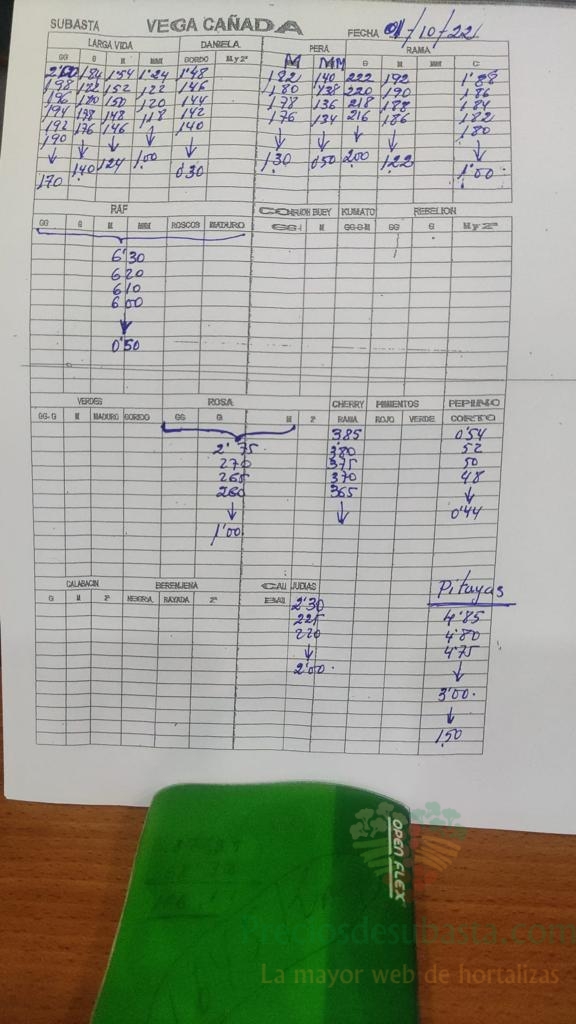 SUBASTA VEGA CAÑADA FECHA 01/10/22
LARGA VIDA DANIELA PERA RAMA
GG G M MMM GORDO M y 2ª M MM G M MMM C
2'00 184 154 1'24 1'48 182 140 222 192 1'88
198 182 152 122 146 180 138 220 190 186
196 180 150 120 144 178 136 218 188 184
194 178 148 118 142 176 134 216 186 182
192 176 146 ↓ 140 ↓ ↓ ↓ ↓ 180
190 ↓ ↓ 1'00 ↓ 130 0'50 200 122 ↓
↓ 140 124 0'30 1'00
170
RAF CORAZON BUEY KUMATO REBELION
GG G M MMM ROSCOS MADURO GG-G M GG-G-M GG G M y 2ª
6'30
620
610
600
↓
0'50
VERDES ROSA CHERRY PIMIENTOS PEPINO
GG-G M MADURO GORDO GG G M 2ª RAMA ROJO VERDE CORTO
385 0'54
2'75 380 52
270 375 50
265 370 48
260 365 ↓
↓ ↓ 0'44
1'00
CALABACIN BERENJENA JUDIAS Pitayas
G M 2ª NEGRA RAYADA 2ª
2'30 4'85
225 4'80
220 4'75
↓ ↓
2'00 3'00
↓
1'50
OPEN FLEX
Preciosdesubasta.com
La mayor web de hortalizas